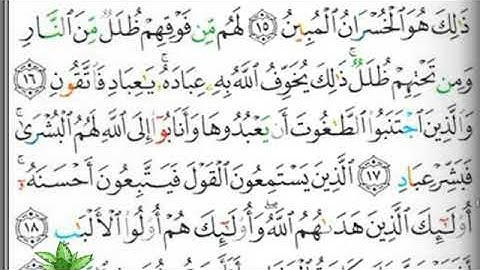 ذَٰلِكَ هُوَ ٱلْخُسْرَانُ ٱلْمُبِينُ ١٥ لَهُم مِّن فَوْقِهِمْ ظُلَلٌ مِّنَ ٱلنَّارِ
وَمِن تَحْتِهِمْ ظُلَلٌ ۚ ذَٰلِكَ يُخَوِّفُ ٱللَّهُ بِهِۦ عِبَادَهُۥ ۚ يَٰعِبَادِ فَٱتَّقُونِ ١٦
وَٱلَّذِينَ ٱجْتَنَبُوا۟ ٱلطَّٰغُوتَ أَن يَعْبُدُوهَا وَأَنَابُوٓا۟ إِلَى ٱللَّهِ لَهُمُ ٱلْبُشْرَىٰ ۚ
فَبَشِّرْ عِبَادِ ١٧ ٱلَّذِينَ يَسْتَمِعُونَ ٱلْقَوْلَ فَيَتَّبِعُونَ أَحْسَنَهُۥٓ ۚ
أُو۟لَٰٓئِكَ ٱلَّذِينَ هَدَىٰهُمُ ٱللَّهُ ۖ وَأُو۟لَٰٓئِكَ هُمْ أُو۟لُوا۟ ٱلْأَلْبَٰبِ ١٨